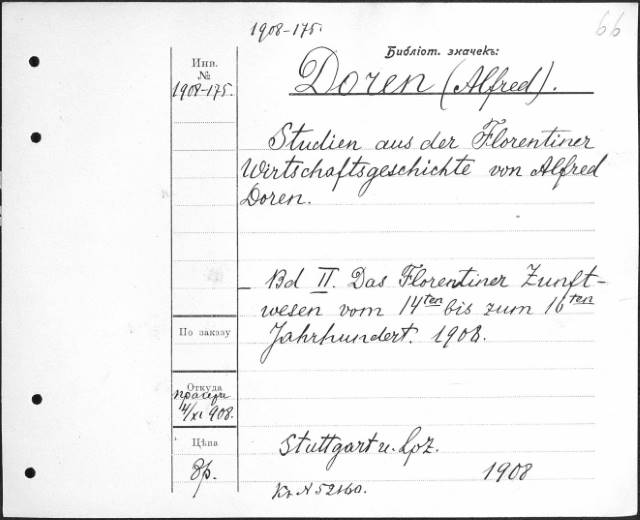 1908-175.
66
Библіот. значекъ:
Инв.
№
1908-175.
Doren (Alfred).
Studien aus der Florentiner
Wirtschaftsgeschichte von Alfred
Doren.
— Bd II. Das Florentiner Zunft-
wesen vom 14ten bis zum 16ten
Jahrhundert. 1908.
По заказу
Откуда
14/XI 908.
Цѣна
8р.
Stuttgart u. Lpz.
1908